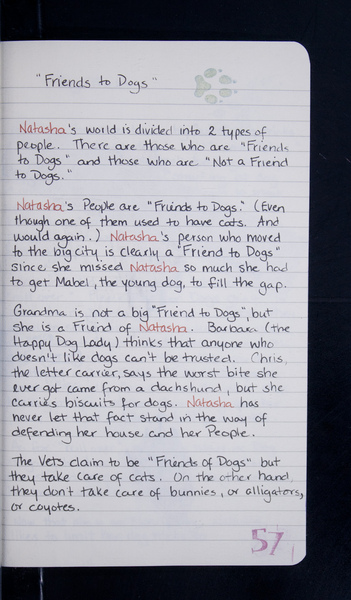 "Friends to Dogs"
Natasha's world is divided into 2 types of
people. There are those who are "Friends
to Dogs" and those who are "Not a Friend
to Dogs."
Natasha's People are "Friends to Dogs." (Even
though one of them used to have cats. And
would again.) Natasha's person who moved
to the big city is clearly a "Friend to Dogs"
since she missed Natasha so much she had
to get Mabel, the young dog, to fill the gap.
Grandma is not a big "Friend to Dogs", but
she is a Friend of Natasha. Barbara (the
Happy Dog Lady) thinks that anyone who
doesn't like dogs can't be trusted. Chris,
the letter carrier, says the worst bite she
ever got came from a dachshund, but she
carries biscuits for dogs. Natasha has
never let that fact stand in the way of
defending her house and her People.
The Vets claim to be "Friends of Dogs" but
they take care of cats. On the other hand
they don't take care of bunnies, or alligators,
or coyotes.
57